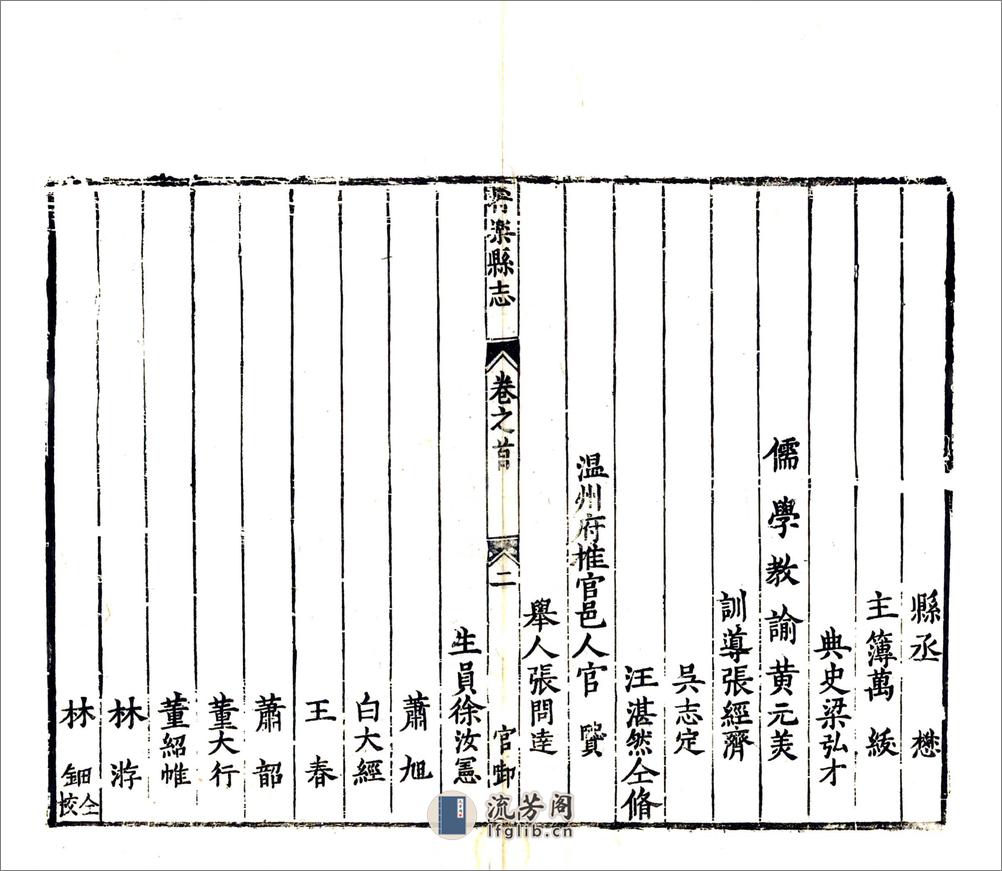 縣丞 懋
主簿萬 綏
典史梁弘才
儒學教諭黄元美
訓導張經濟
吳志定
汪湛然仝脩
温州府推官邑人官 賢
舉人張問達
樂縣志 卷之首 二 官御
生員徐汝憲
蕭旭
白大經
王春
蕭韶
董大行
董紹帷
林㳺
林鈿仝校
流芳阁
lfglib.cn